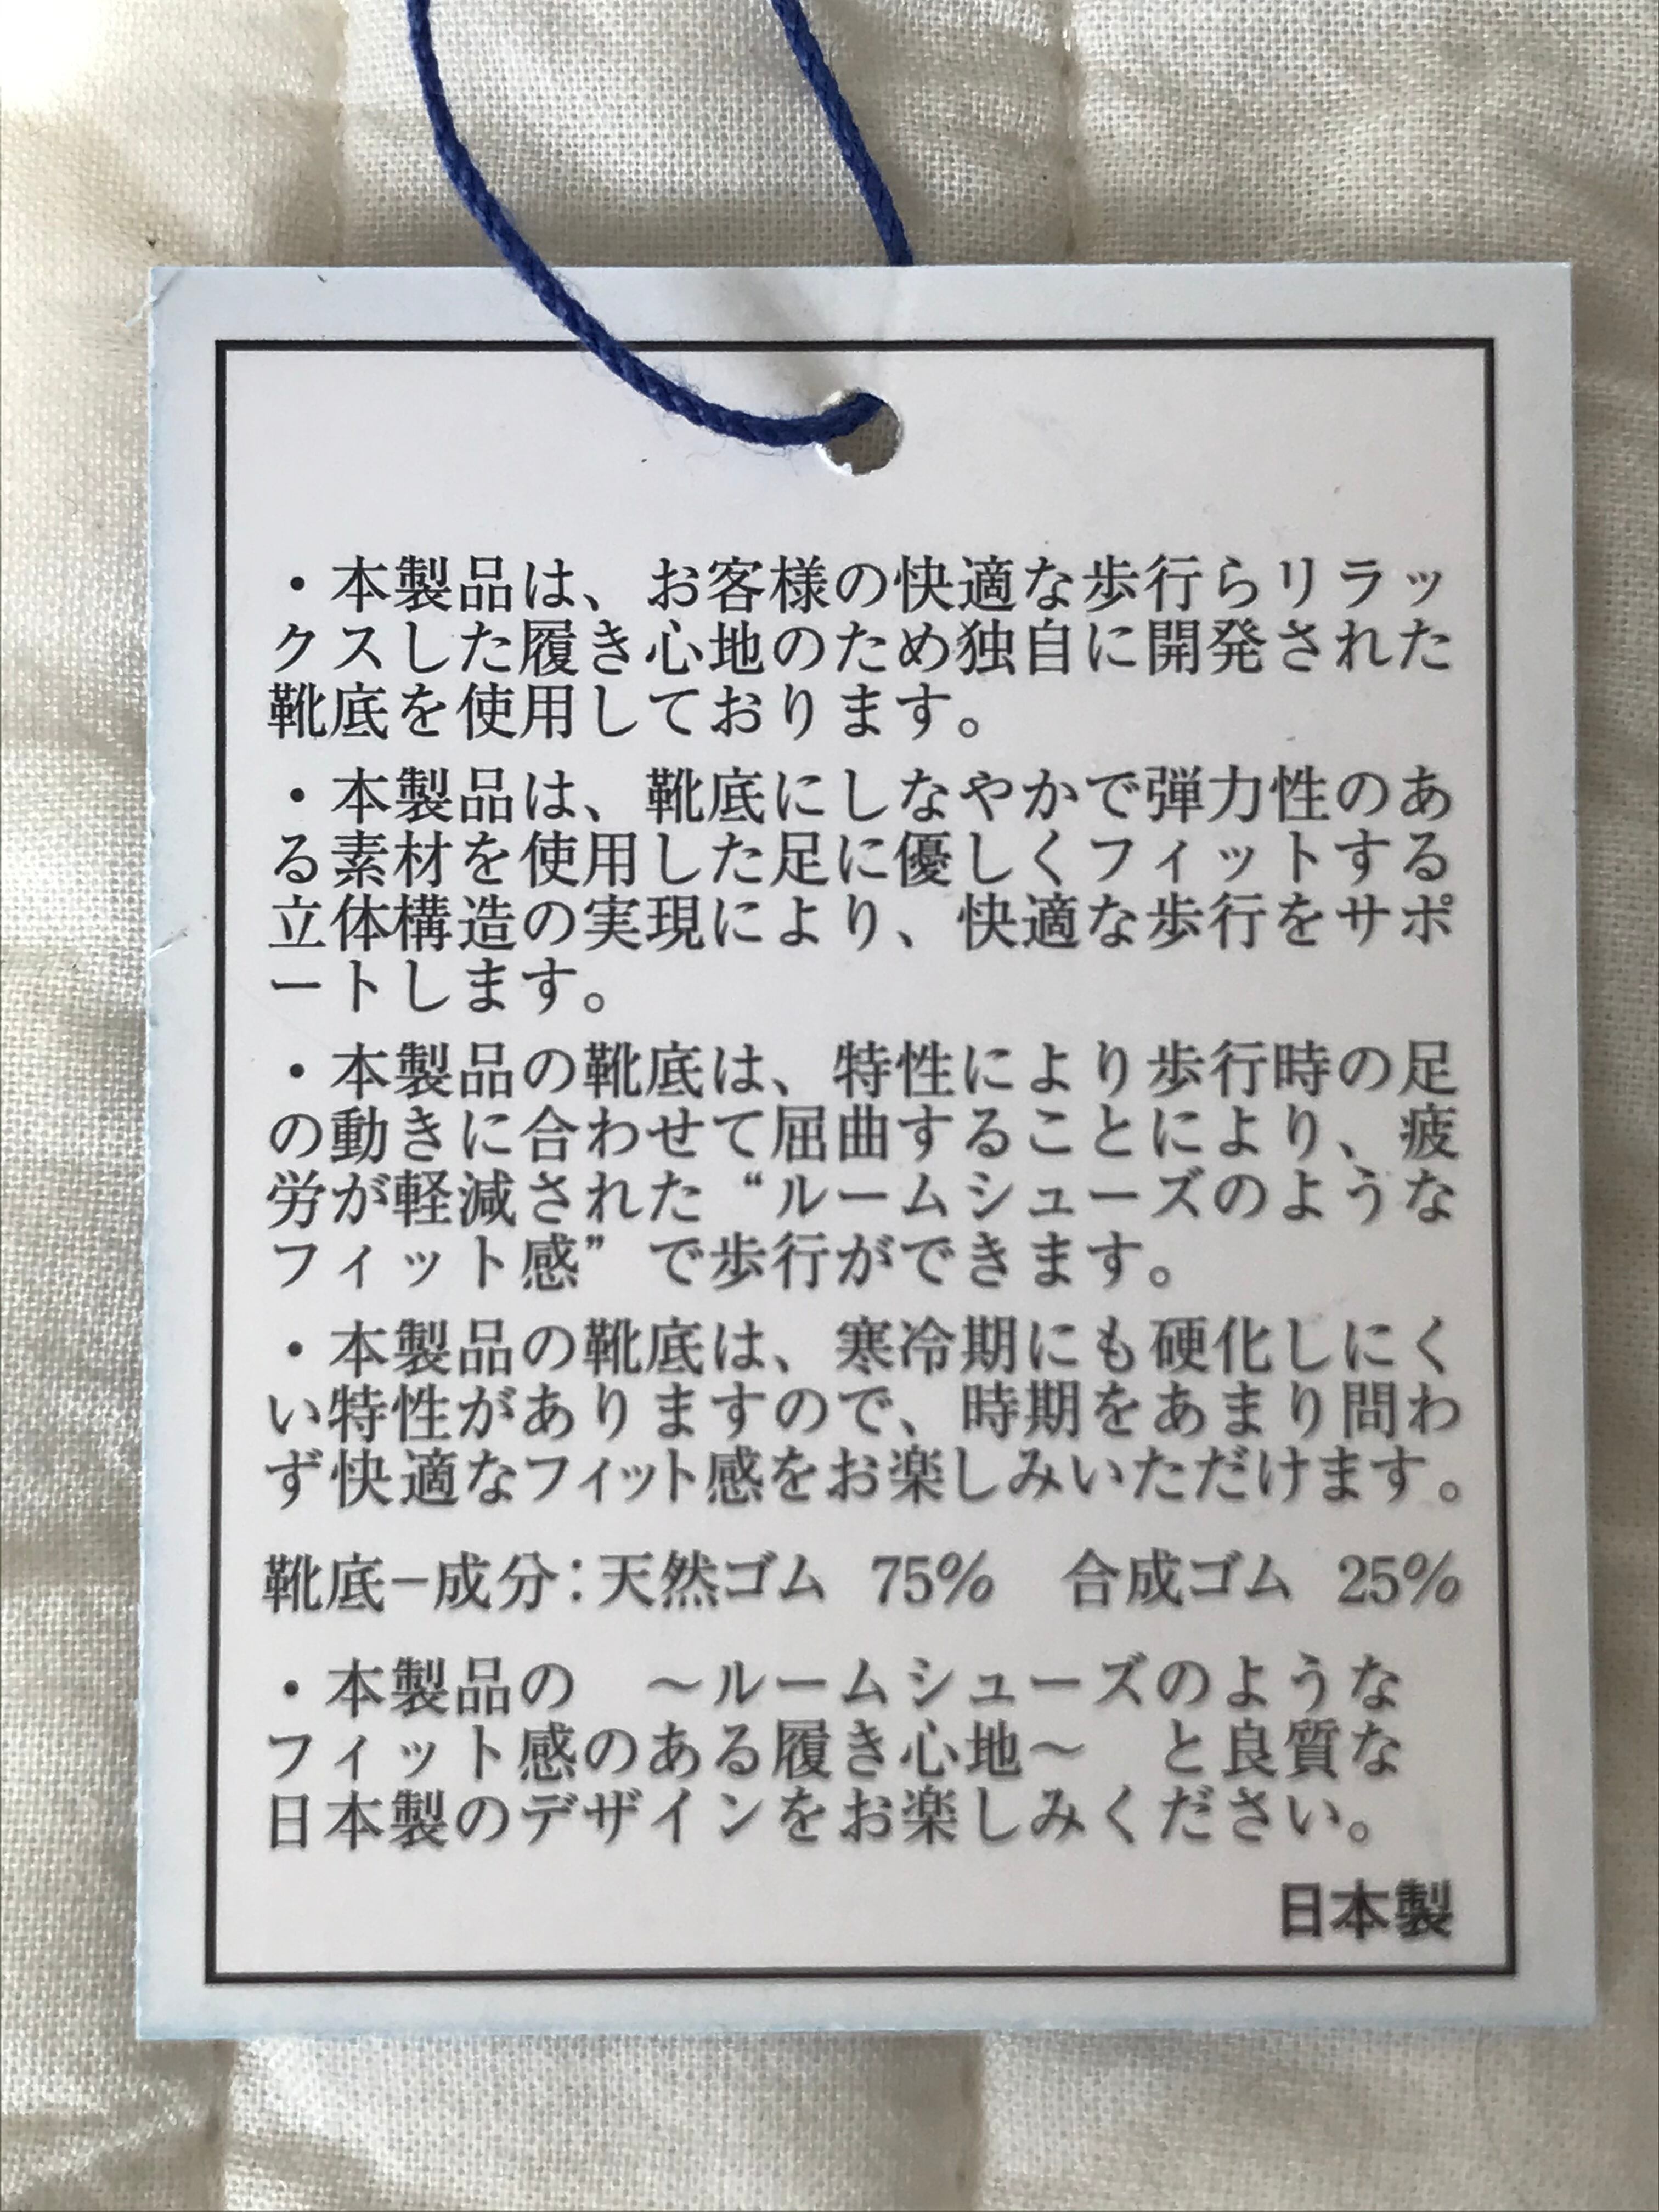 ・本製品は、お客様の快適な歩行らリラッ
クスした履き心地のため独自に開発された
靴底を使用しております。
・本製品は、靴底にしなやかで弾力性のあ
る素材を使用した足に優しくフィットする
立体構造の実現により、快適な歩行をサポ
ートします。
・本製品の靴底は、特性により歩行時の足
の動きに合わせて屈曲することにより、疲
労が軽減された“ルームシューズのような
フィット感”で歩行ができます。
・本製品の靴底は、寒冷期にも硬化しにく
い特性がありますので、時期をあまり問わ
ず快適なフィット感をお楽しみいただけます。
靴底−成分：天然ゴム 75%　合成ゴム 25%
・本製品の　～ルームシューズのような
フィット感のある履き心地～　と良質な
日本製のデザインをお楽しみください。
日本製